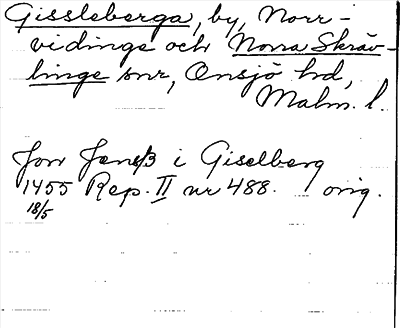 Gissleberga, by, Norr-
vidinge och Norra Skräv-
linge snr, Onsjö hd,
Malm. l.
Jon Jensß i Giselberg
1455 Rep. II nr 488. orig.
18/5